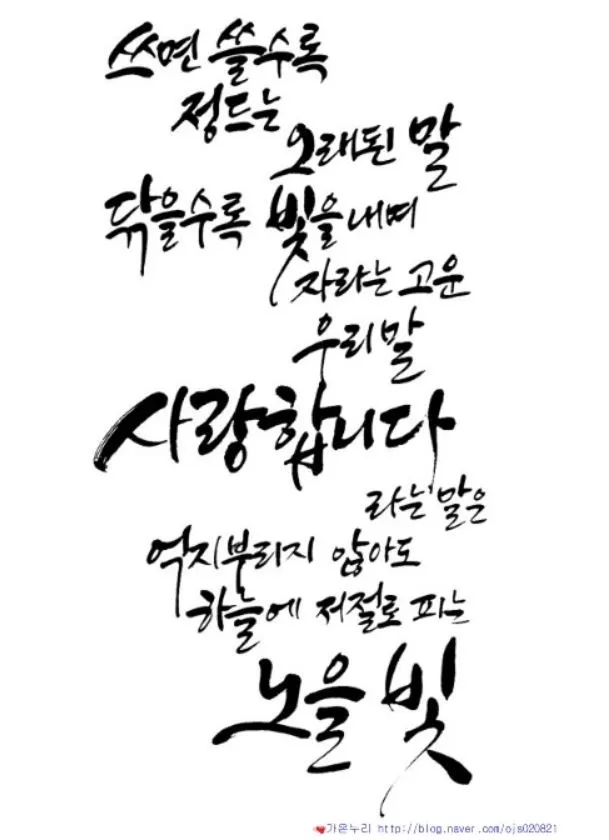 쓰면 쓸수록
정드는
오래된 말
닦을수록 빛을 내며
자라는 고운
우리말
사랑합니다
라는 말은
억지부리지 않아도
하늘에 저절로 피는
노을 빛
가온누리 http://blog.naver.com/ojs020821